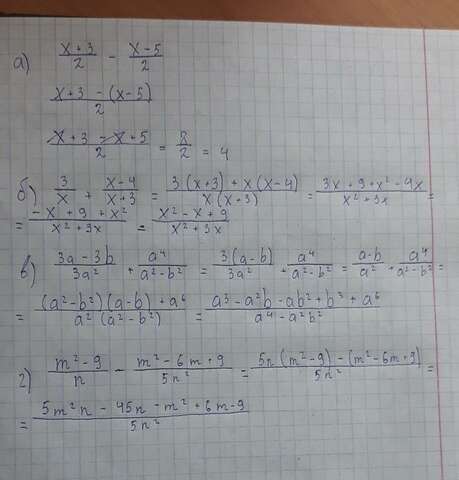 а) (x+3)/2 - (x-5)/2
(x+3-(x-5))/2
(x+3-x+5)/2 = 8/2 = 4
б) 3/x + (x-4)/(x+3) = (3(x+3)+x(x-4))/(x(x+3)) = (3x+9+x²-4x)/(x²+3x) =
= (-x+9+x²)/(x²+3x) = (x²-x+9)/(x²+3x)
в) (3a-3b)/(3a²) + a⁴/(a²-b²) = (3(a-b))/(3a²) + a⁴/(a²-b²) = (a-b)/a² + a⁴/(a²-b²) =
= ((a²-b²)(a-b)+a⁶)/(a²(a²-b²)) = (a³-a²b-ab²+b³+a⁶)/(a⁴-a²b²)
г) (m²-9)/n - (m²-6m+9)/(5n²) = (5n(m²-9)-(m²-6m+9))/(5n²) =
= (5m²n-45n-m²+6m-9)/(5n²)